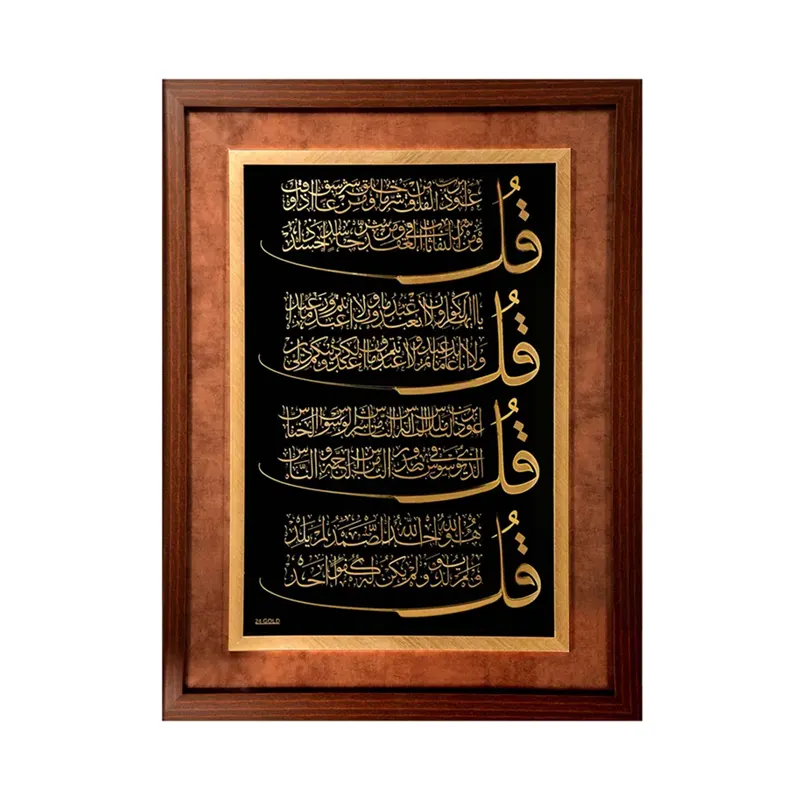 قُل أعوذ برب الفلق من شر ما خلق ومن شر غاسق إذا وقب
ومن شر النفاثات في العقد ومن شر حاسد إذا حسد
قُل يا أيها الكافرون لا أعبد ما تعبدون ولا أنتم عابدون ما أعبد
ولا أنا عابد ما عبدتم ولا أنتم عابدون ما أعبد لكم دينكم ولي دين
قُل أعوذ برب الناس ملك الناس إله الناس من شر الوسواس الخناس
الذي يوسوس في صدور الناس من الجنة والناس
قُل هو الله أحد الله الصمد لم يلد
ولم يولد ولم يكن له كفوا أحد
24 GOLD